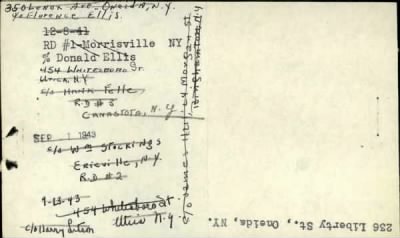 350 Lenox Ave. Oneida, N.Y.
c/o Florence Ellis.
12-8-41
RD #1-Morrisville NY
% Donald Ellis
454 Whitesboro St.
Utica, N.Y.
c/o Hank
R.D #3
Canastota, N.Y
SEP 1 1943
c/o Wm Stockings
Erieville, N.Y.
R.D #2
9-13-43
454 Whitesboro St.
Utica N.Y.
c/o Harry
c/o James
Morgan St
236 Liberty St., Oneida, NY.